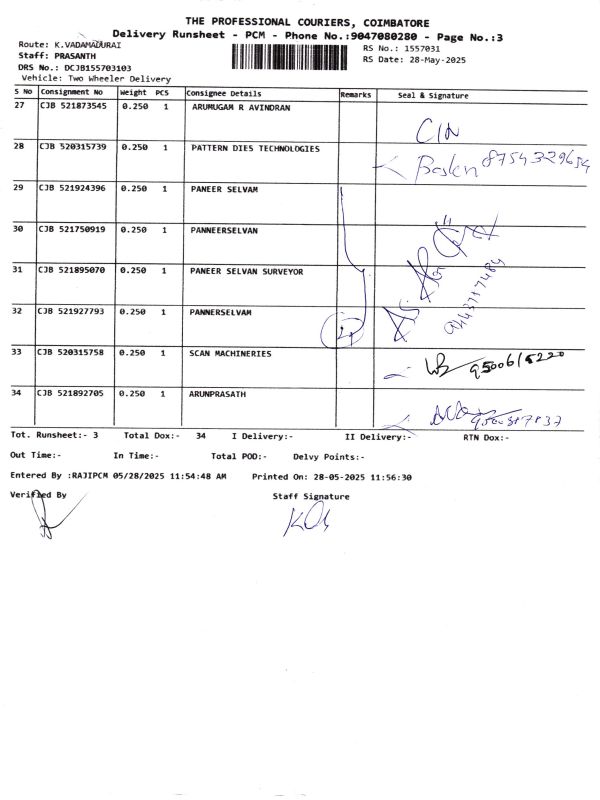 THE PROFESSIONAL COURIERS, COIMBATORE
Delivery Runsheet - PCM - Phone No.:9047080280 - Page No.:3
Route: K.VADAMADURAI
RS No.: 1557031
Staff: PRASANTH
RS Date: 28-May-2025
DRS No.: DCJB155703103
Vehicle: Two Wheeler Delivery
S No Consignment No Weight PCS Consignee Details Remarks Seal & Signature
27 CJB 521873545 0.250 1 ARUMUGAM R AVINDRAN
CIN
28 CJB 520315739 0.250 1 PATTERN DIES TECHNOLOGIES
8754329654
29 CJB 521924396 0.250 1 PANEER SELVAM
30 CJB 521750919 0.250 1 PANNEERSELVAN
31 CJB 521895070 0.250 1 PANEER SELVAN SURVEYOR
32 CJB 521927793 0.250 1 PANNERSELVAM
4
33 CJB 520315758 0.250 1 SCAN MACHINERIES
34 CJB 521892705 0.250 1 ARUNPRASATH
Tot. Runsheet:- 3 Total Dox:- 34 I Delivery:- II Delivery:- RTN Dox:-
Out Time:- In Time:- Total POD:- Delvy Points:-
Entered By :RAJIPCM 05/28/2025 11:54:48 AM Printed On: 28-05-2025 11:56:30
Verified By Staff Signature